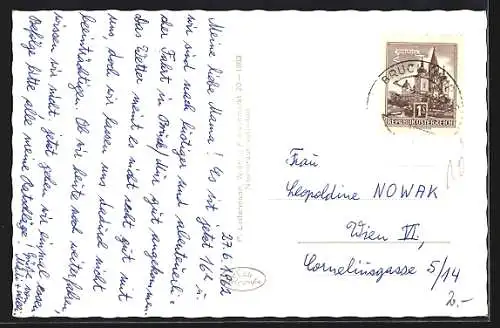 27.6.1962
Meine liebe Mama! Es ist jetzt 16h u.
wir sind nach lustiger und abenteuerli-
cher Fahrt in Bruck/Mur gut angekommen.
Das Wetter meint es nicht recht gut mit
uns doch wir lassen uns dadurch nicht
beeinträchtigen. Ob wir heute noch weiterfahren,
wissen wir nicht. Jetzt gehen wir einmal essen.
Befolge bitte alle meine Ratschläge!
BRUCK
REPUBLIK ÖSTERREICH
1S
Frau
Leopoldine NOWAK
Wien VI,
Corneliusgasse 5/14
2,-